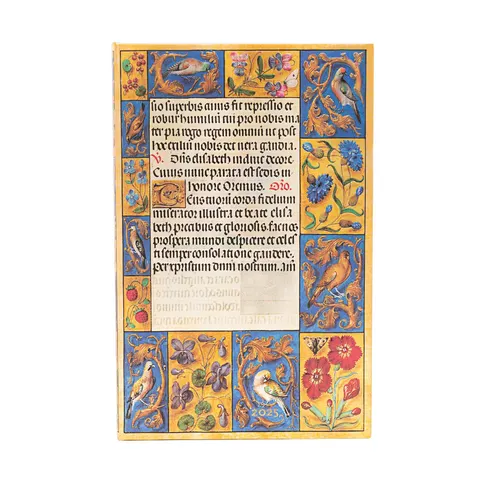 sio superbis cuius fit repressio et
robur humiliū tui pro nobis ma
ter pia rogo regem omniū ut post
hoc exiliū nobis det vera gaudia.
V. Dn̄s elisabeth induit decore.
Cuius nunc parata est sedis in
honore Oremus. Oro.
Deus tuorū corda fidelium
miserator illustra et beate elisa
beth precibus et gloriosis. fac nos
prospera mundi despicere et celes
ti semper consolatione gaudere.
per xpristum dnm nostrum. am
2025